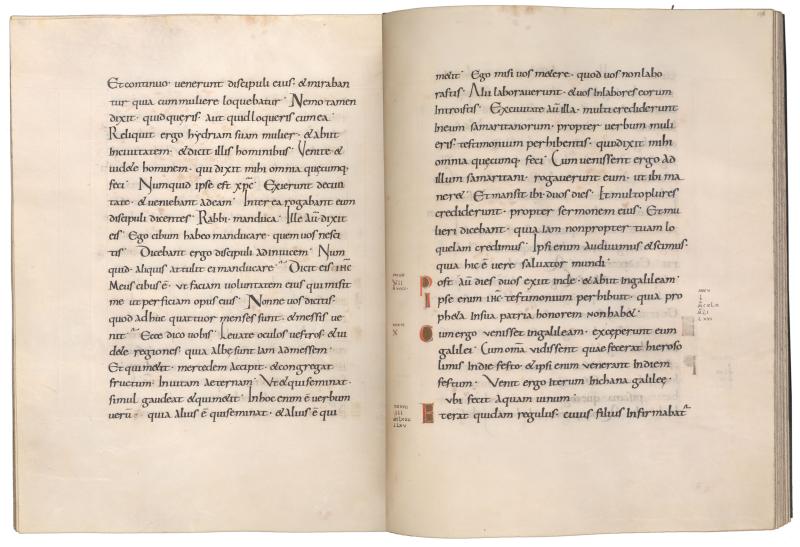 Et continuo· venerunt discipuli eius· & miraban
tur quia cum muliere loquebatur· Nemo tamen
dixit· quid queris· aut quid loqueris cum ea·
Reliquit ergo hydriam suam mulier· & abiit
In civitatem· & dicit illis hominibus· Venite &
videte hominem· qui dixit mihi omnia quęcumq·
feci· Numquid ipse est xp̅c· Exierunt de civi
tate· & veniebant ad eam· Inter ea rogabant eum
discipuli dicentes· Rabbi· manduca· Ille aū· dixit
eis· Ego cibum habeo manducare· quem vos nesci
tis· Dicebant ergo discipuli ad invicem· Num
quid· aliquis attulit ei manducare· Dicit eis· ihc̅
Meus cibus ē· ut faciam voluntatem eius qui misit
me ut perficiam opus eius· Nonne vos dicitis·
quod adhuc quattuor menses sunt· & messis ve
nit· Ecce dico vobis· Levate oculos vestros· & vi
dete regiones· quia albę sunt iam ad messem·
Et qui metit· mercedem accipit· & congregat
fructum· In vitam aeternam· Ut & qui seminat·
simul gaudeat & qui metit· In hoc enim ē verbum
verū· quia alius ē qui seminat· & alius ē qui
metit· Ego misi vos metere· quod vos non labo
rastis· Alii laboraverunt· & vos In labores eorum
Introistis· Ex civitate aū· illa· multi crediderunt
In eum samaritanorum· propter verbum muli
eris· testimonium perhibentis· quia dixit mihi
omnia quęcumq· feci· Cum venissent ergo ad
illum samaritani· rogaverunt eum· ut ibi ma
neret· Et mansit ibi· duos dies· Et multo plures
crediderunt· propter sermonem eius· Et mu
lieri dicebant· quia iam non propter tuam lo
quelam credimus· Ipsi enim audivimus & scimus·
quia hic ē vere salvator mundi·
Post aū dies duos exiit inde· & abiit In galileam·
Ipse enim ihc̅ testimonium perhibuit· quia pro
pheta In sua patria honorem non habet·
Cum ergo venisset In galileam· exceperunt eum
galilei· Cum omīa vidissent quae fecerat hieroso
limis In die festo· & ipsi enim venerant In diem
festum· Venit ergo iterum In chana galileę·
ubi fecit aquam vinum·
Et erat quidam regulus· cuius filius infirmabat̄